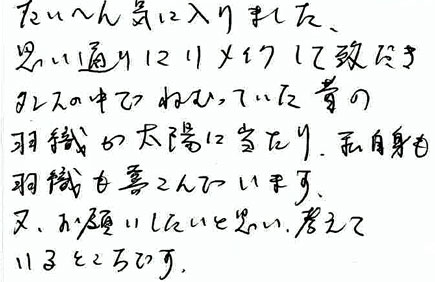 たいへん気に入りました、
思い通りにリメイクして致だき
タンスの中でねむっていた昔の
羽織が太陽に当たり、私自身も
羽織も喜こんでいます、
又、お願いしたいと思い、考えて
いるところです、